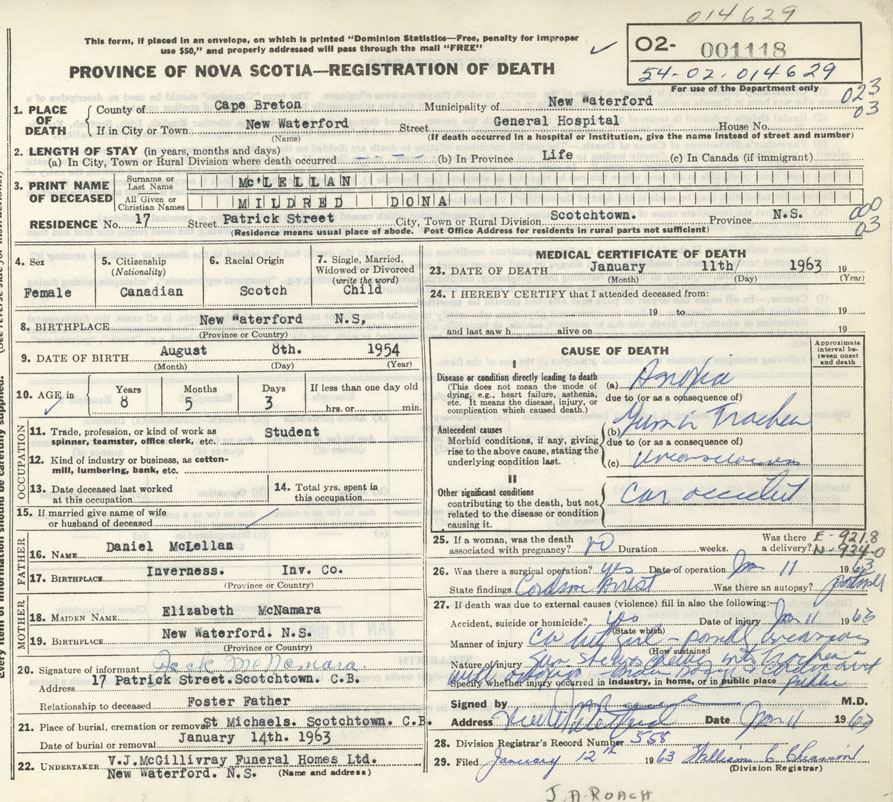 014629
This form, if placed in an envelope, on which is printed "Dominion Statistics—Free, penalty for improper
use $50," and properly addressed will pass through the mail "FREE"
✓
02- 001118
54-02-014629
For use of the Department only
PROVINCE OF NOVA SCOTIA—REGISTRATION OF DEATH
023
03
1. PLACE OF DEATH { County of Cape Breton Municipality of New Waterford
If in City or Town New Waterford Street General Hospital House No.
(Name) (If death occurred in a hospital or institution, give the name instead of street and number)
2. LENGTH OF STAY (in years, months and days)
(a) In City, Town or Rural Division where death occurred (b) In Province Life (c) In Canada (if immigrant)
3. PRINT NAME OF DECEASED { Surname or Last Name Mc'LELLAN
All Given or Christian Names MILDRED DONA
000
03
RESIDENCE No. 17 Street Patrick Street City, Town or Rural Division Scotchtown. Province N.S.
(Residence means usual place of abode. Post Office Address for residents in rural parts not sufficient)
4. Sex Female
5. Citizenship (Nationality) Canadian
6. Racial Origin Scotch
7. Single, Married, Widowed or Divorced (write the word) Child
8. BIRTHPLACE New Waterford N.S,
(Province or Country)
9. DATE OF BIRTH August 8th. 1954
(Month) (Day) (Year)
10. AGE in Years 8 Months 5 Days 3 If less than one day old hrs. or min.
OCCUPATION
11. Trade, profession, or kind of work as spinner, teamster, office clerk, etc. Student
12. Kind of industry or business, as cotton-mill, lumbering, bank, etc.
13. Date deceased last worked at this occupation
14. Total yrs. spent in this occupation
15. If married give name of wife or husband of deceased
FATHER
16. NAME Daniel McLellan
17. BIRTHPLACE Inverness. Inv. Co.
(Province or Country)
MOTHER
18. MAIDEN NAME Elizabeth McNamara
19. BIRTHPLACE New Waterford. N.S.
(Province or Country)
20. Signature of informant Jack McNamara
Address 17 Patrick Street.Scotchtown. C.B.
Relationship to deceased Foster Father
21. Place of burial, cremation or removal St Michaels. Scotchtown. C.B.
Date of burial or removal January 14th. 1963
22. UNDERTAKER V.J.McGillivray Funeral Homes Ltd.
New Waterford. N.S. (Name and address)
MEDICAL CERTIFICATE OF DEATH
23. DATE OF DEATH January 11th/ 1963 19
(Month) (Day) (Year)
24. I HEREBY CERTIFY that I attended deceased from:
19 to 19
and last saw h alive on 19
CAUSE OF DEATH
Approximate interval between onset and death
I
Disease or condition directly leading to death
(This does not mean the mode of dying, e.g., heart failure, asthenia, etc. It means the disease, injury, or complication which caused death.)
(a) Anoxia
due to (or as a consequence of)
Antecedent causes
Morbid conditions, if any, giving rise to the above cause, stating the underlying condition last.
(b) Gum in Trachea
due to (or as a consequence of)
(c)
II
Other significant conditions
contributing to the death, but not related to the disease or condition causing it.
Car accident
25. If a woman, was the death associated with pregnancy? no Duration weeks. Was there a delivery?
E-921.8
N-934.0
26. Was there a surgical operation? yes Date of operation Jan 11 1963
State findings Cardiac Arrest Was there an autopsy?
27. If death was due to external causes (violence) fill in also the following:
Accident, suicide or homicide? Date of injury Jan 11 1963
(State which)
Manner of injury Car hit girl
(How sustained)
Nature of injury
Specify whether injury occurred in industry, in home, or in public place public
Signed by M.D.
Address New Waterford Date Jan 11 1963
28. Division Registrar's Record Number 558
29. Filed January 12th 1963
(Division Registrar)
J.A. ROACH